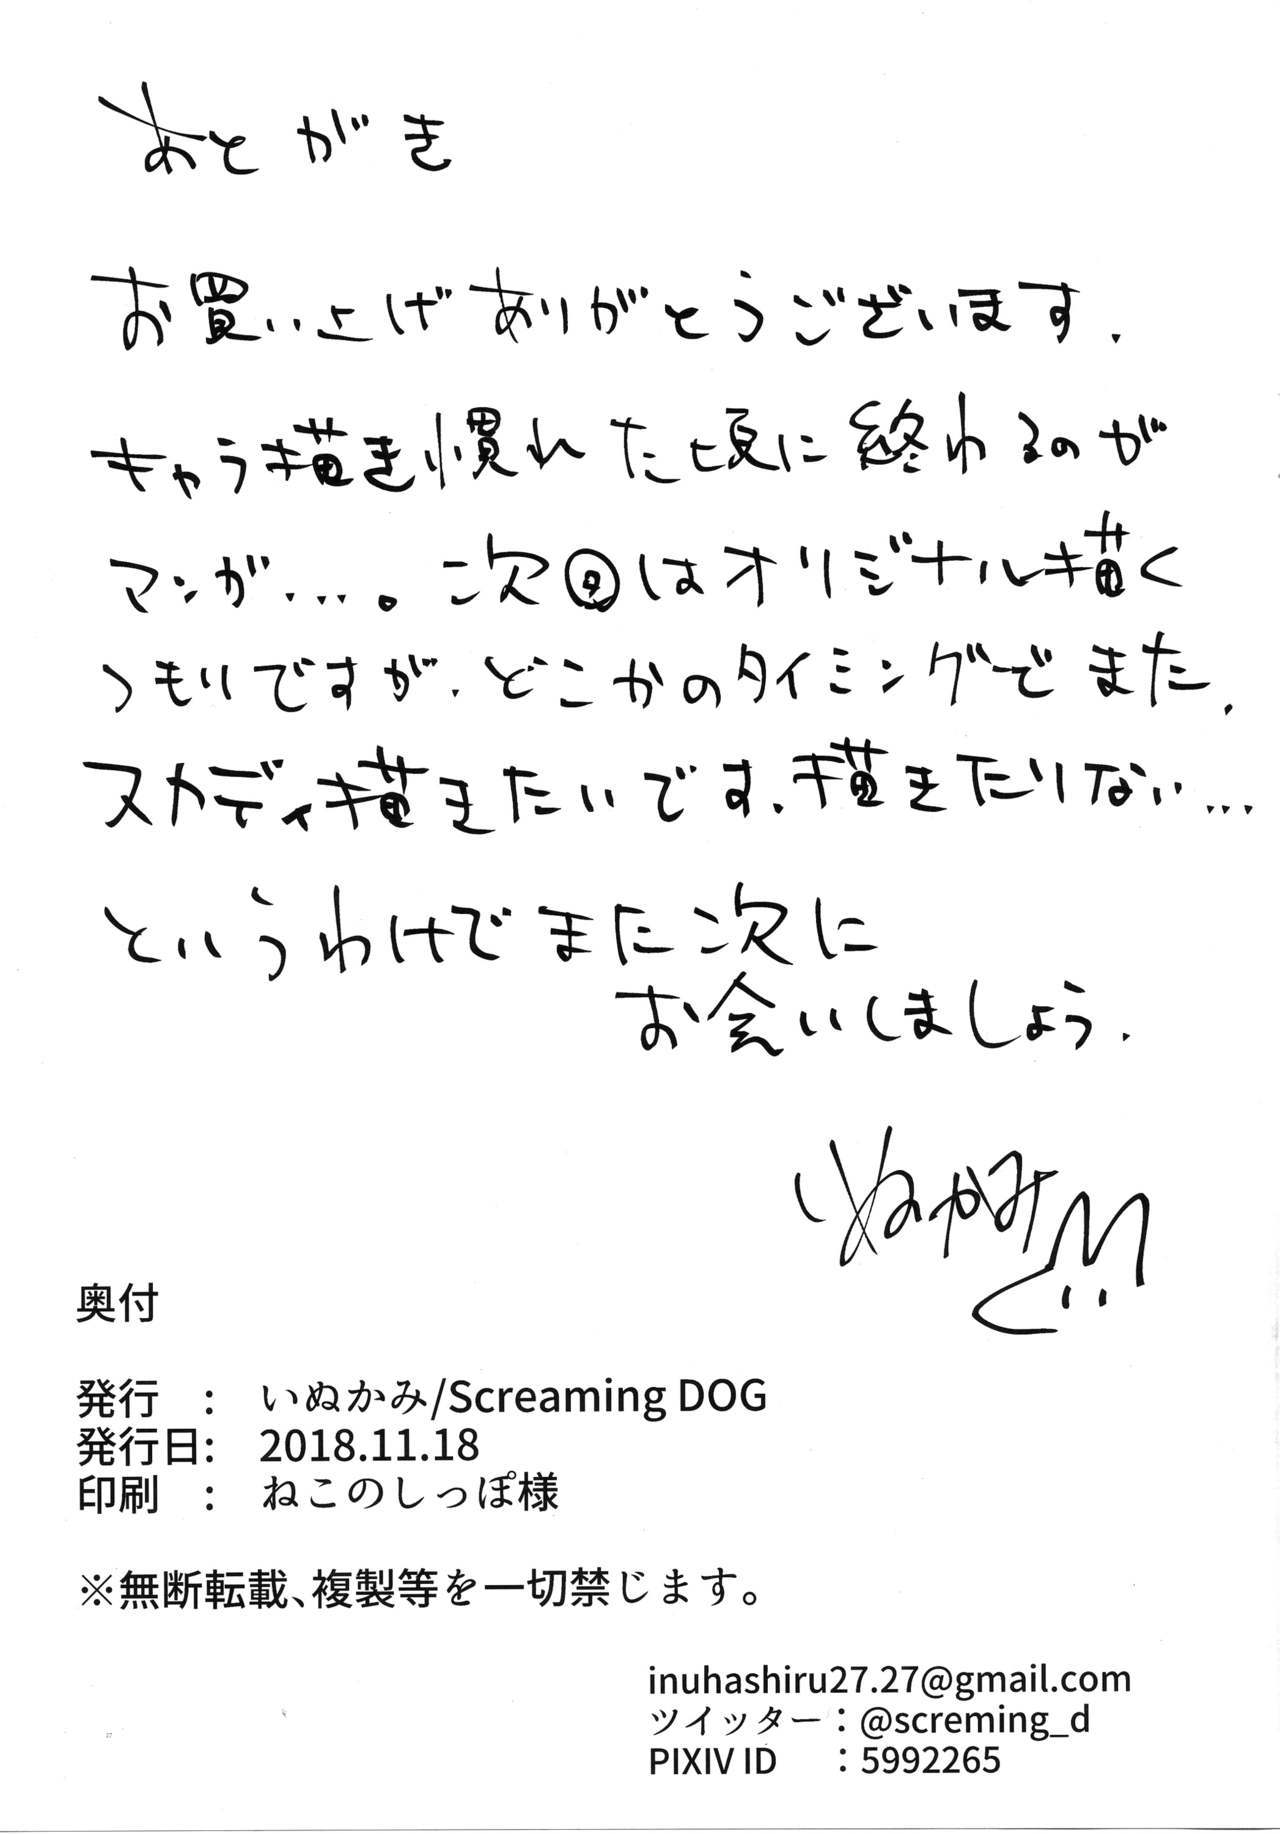 あとがき
お買い上げありがとうございます.
キャラ描き慣れた頃に終わるのが
マンガ...。次回はオリジナル描く
つもりですが、どこかのタイミングでまた、
スカディ描きたいです、描きたりない...
というわけでまた次に
お会いしましょう.
いぬかみ
奥付
発行　:　いぬかみ/Screaming DOG
発行日:　2018.11.18
印刷　:　ねこのしっぽ様
※無断転載、複製等を一切禁じます。
inuhashiru27.27@gmail.com
ツイッター：@screming_d
PIXIV ID　：5992265